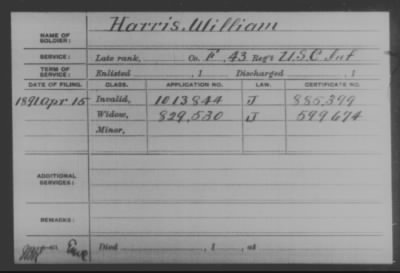 NAME OF SOLDIER: Harris, William
SERVICE: Late rank, Co. F, 43 Reg't U.S.C. Inf
TERM OF SERVICE: Enlisted , 1 Discharged , 1
DATE OF FILING. CLASS. APPLICATION NO. LAW. CERTIFICATE NO.
1891 Apr 15 Invalid, 1013844 J 885,399
Widow, 829,530 J 599674
Minor,
ADDITIONAL SERVICES:
REMARKS:
Died , 1 , at